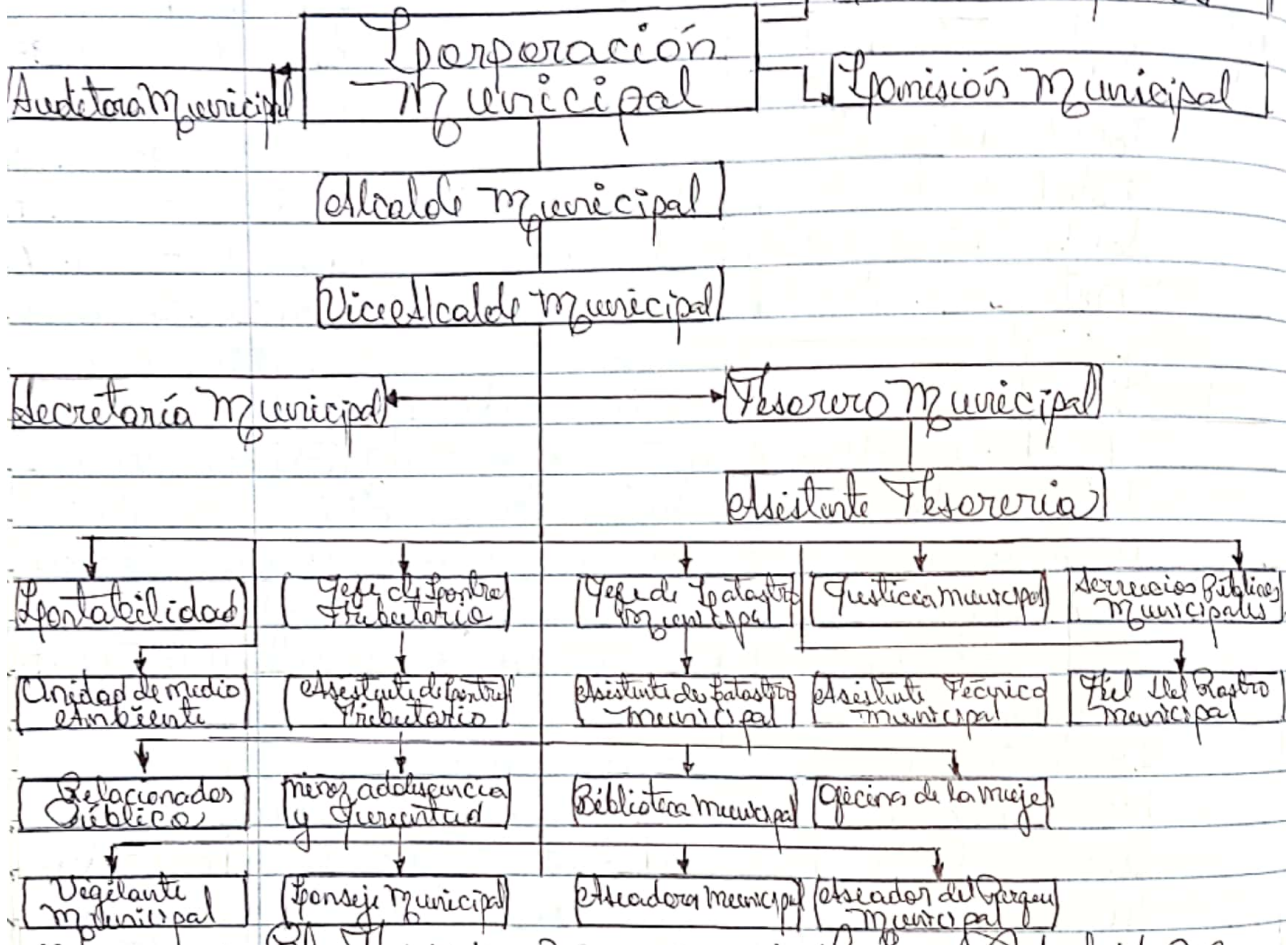 Corporación
Municipal
Auditora Municipal
Comisión Municipal
Alcalde Municipal
Vice Alcalde Municipal
Secretaría Municipal
Tesorero Municipal
Asistente Tesoreria
Contabilidad
Jefe de Contro
Tributario
Jefe de Catastro
Municipal
Justicia Municipal
Servicios Públicos
Municipales
Unidad de medio
Ambiente
Asistente de Control
Tributario
Asistente de Catastro
Municipal
Asistente Técnico
Municipal
Fiel Del Rastro
Municipal
Relacionador
Público
niñez adolescencia
y Juventud
Biblioteca Municipal
Oficina de la Mujer
Vigilante
Municipal
Conseje Municipal
Aseadora Municipal
Aseador del Parque
Municipal